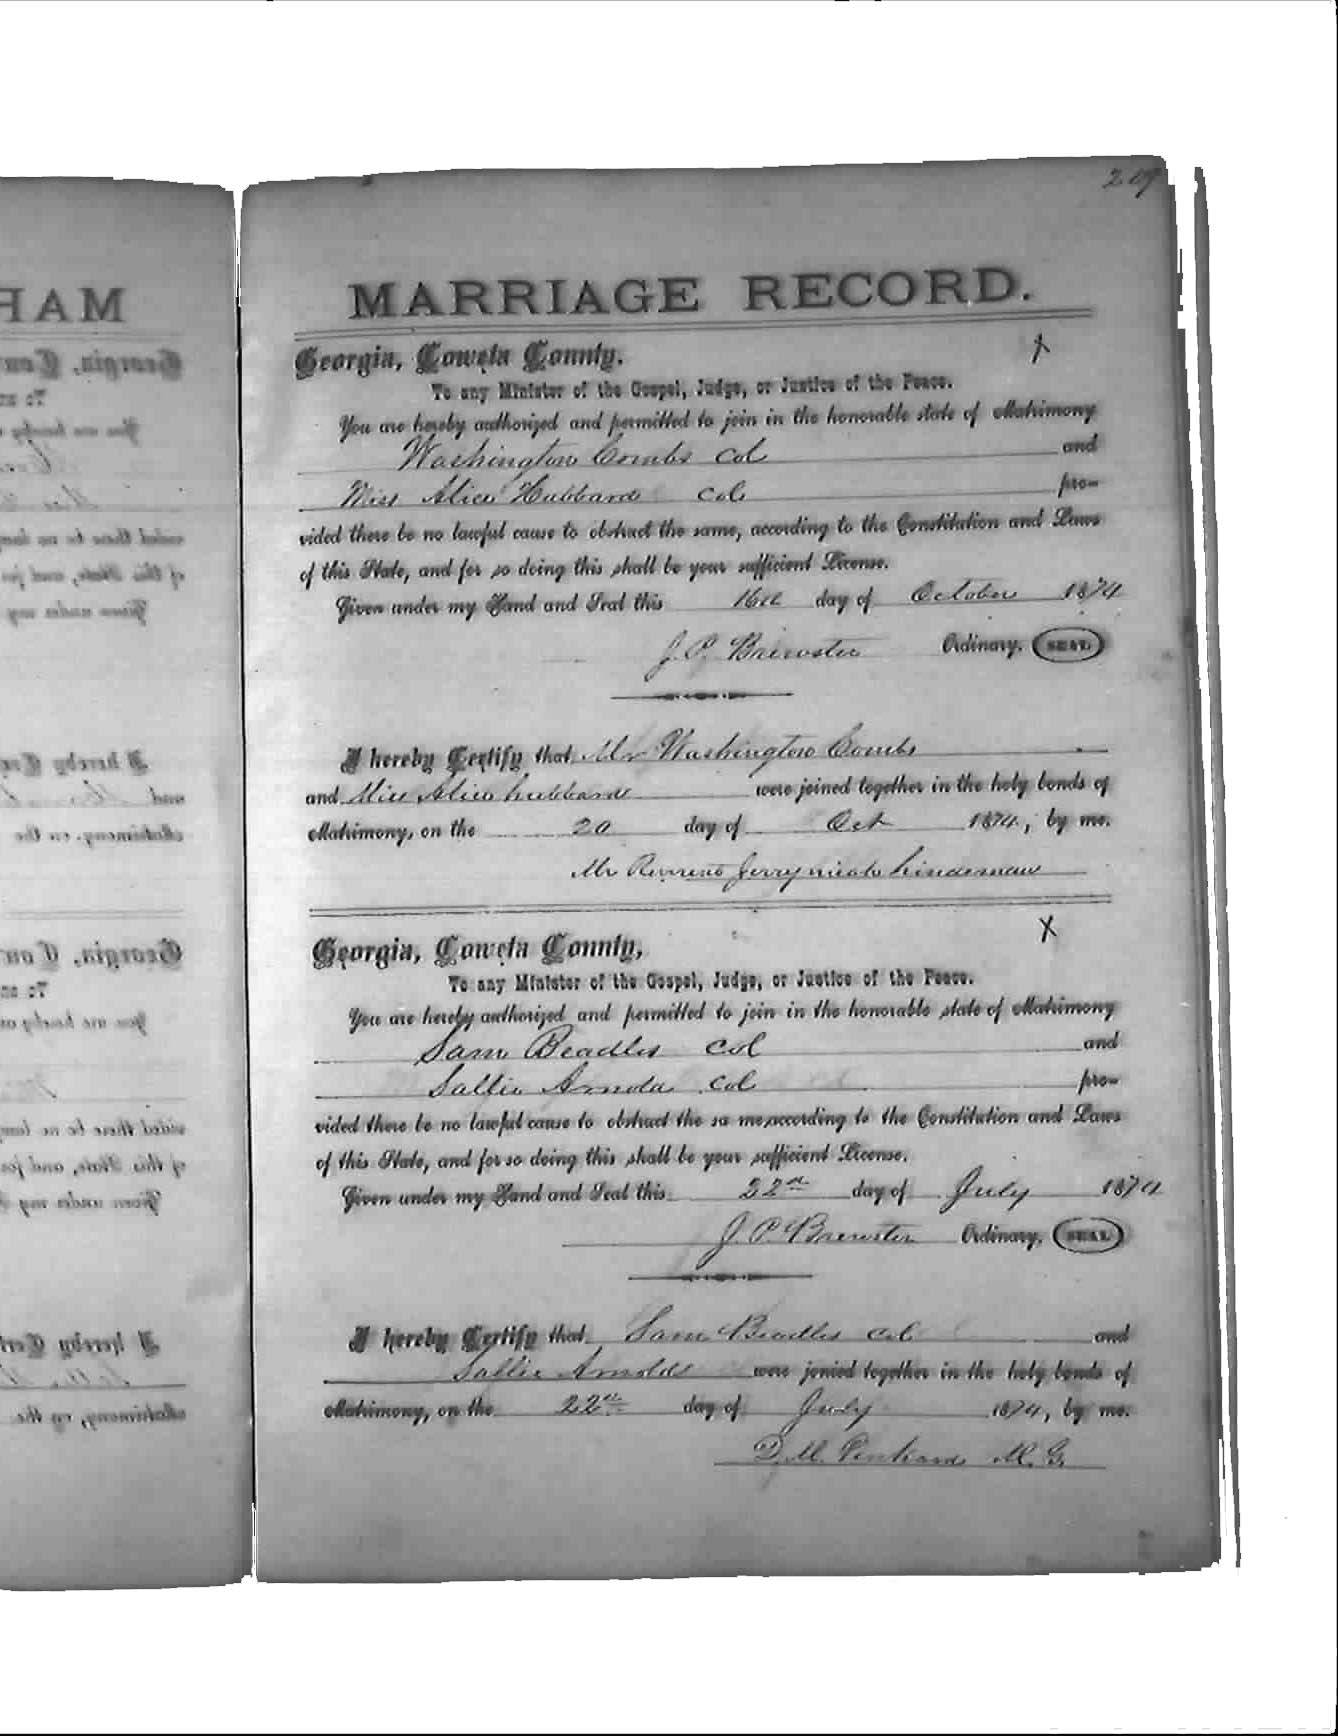 209
MARRIAGE RECORD.
X
Georgia, Coweta County.
To any Minister of the Gospel, Judge, or Justice of the Peace.
You are hereby authorized and permitted to join in the honorable state of Matrimony
Washington Combs col and
Miss Alice Hubbard col pro-
vided there be no lawful cause to obstruct the same, according to the Constitution and Laws
of this State, and for so doing this shall be your sufficient License.
Given under my Hand and Seal this 16th day of October 1874
J. P. Brewster Ordinary. SEAL
I hereby Certify that Mr Washington Combs
and Miss Alice hubbard were joined together in the holy bonds of
Matrimony, on the 20 day of Oct 1874, by me.
Mr Reverend Jerry
X
Georgia, Coweta County,
To any Minister of the Gospel, Judge, or Justice of the Peace.
You are hereby authorized and permitted to join in the honorable state of Matrimony
Sam Beadles col and
Sallie Arnold col pro-
vided there be no lawful cause to obstruct the sa me,according to the Constitution and Laws
of this State, and for so doing this shall be your sufficient License.
Given under my Hand and Seal this 22nd day of July 1874
J. P. Brewster Ordinary, SEAL
I hereby Certify that Sam Beadles col and
Sallie Arnold were jonied together in the holy bonds of
Matrimony, on the 22nd day of July 1874, by me.
D. M. M. G.